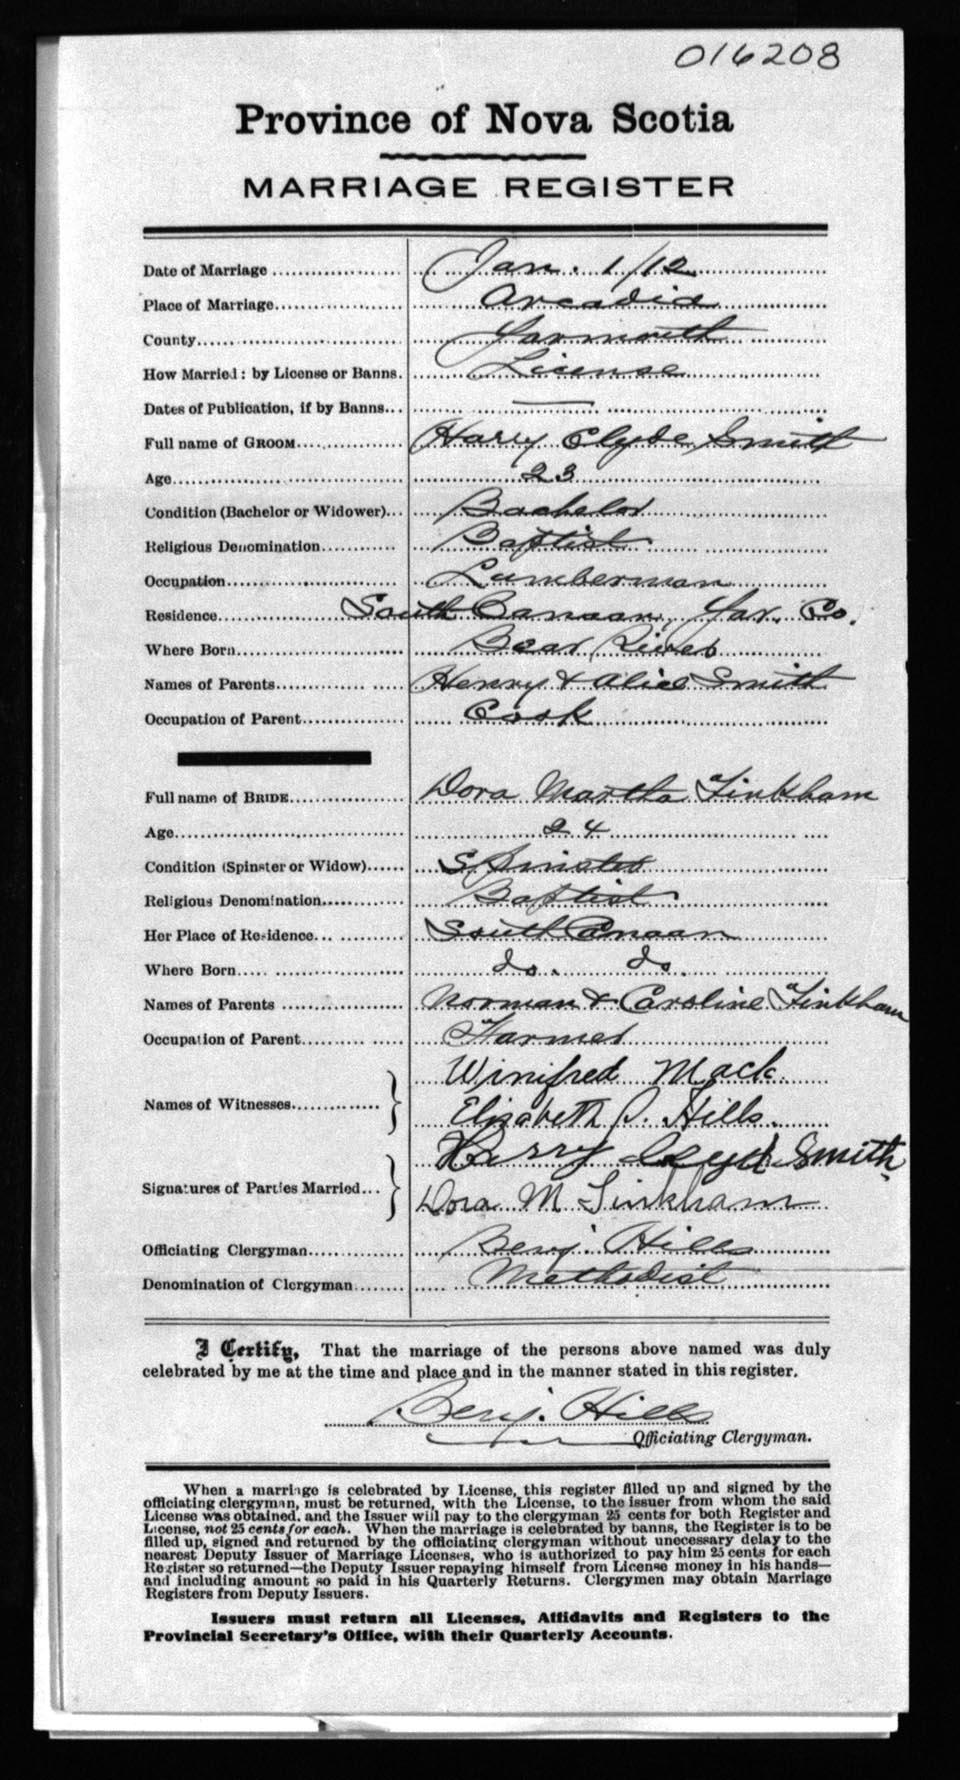 016208
Province of Nova Scotia
MARRIAGE REGISTER
Date of Marriage Jan. 1/12
Place of Marriage Arcadia
County Yarmouth
How Married: by License or Banns. License
Dates of Publication, if by Banns... —
Full name of GROOM Harry Clyde Smith
Age 23
Condition (Bachelor or Widower) Bachelor
Religious Denomination Baptist
Occupation Lumberman
Residence South Canaan, Yar. Co.
Where Born Bear River
Names of Parents Henry & Alice Smith
Occupation of Parent Cook
Full name of BRIDE Dora Martha Tinkham
Age 24
Condition (Spinster or Widow) Spinster
Religious Denomination Baptist
Her Place of Residence South Canaan
Where Born do. do.
Names of Parents Norman & Caroline Tinkham
Occupation of Parent Farmer
Winifred Mack
Names of Witnesses
Elizabeth P. Hills.
Harry Clyde Smith
Signatures of Parties Married...
Dora M Tinkham
Officiating Clergyman Benj. Hills
Denomination of Clergyman Methodist
I Certify, That the marriage of the persons above named was duly
celebrated by me at the time and place and in the manner stated in this register.
Benj. Hills
Officiating Clergyman.
When a marriage is celebrated by License, this register filled up and signed by the
officiating clergyman, must be returned, with the License, to the issuer from whom the said
License was obtained, and the Issuer will pay to the clergyman 25 cents for both Register and
License, not 25 cents for each. When the marriage is celebrated by banns, the Register is to be
filled up, signed and returned by the officiating clergyman without unecessary delay to the
nearest Deputy Issuer of Marriage Licenses, who is authorized to pay him 25 cents for each
Register so returned—the Deputy Issuer repaying himself from License money in his hands—
and including amount so paid in his Quarterly Returns. Clergymen may obtain Marriage
Registers from Deputy Issuers.
Issuers must return all Licenses, Affidavits and Registers to the
Provincial Secretary's Office, with their Quarterly Accounts.